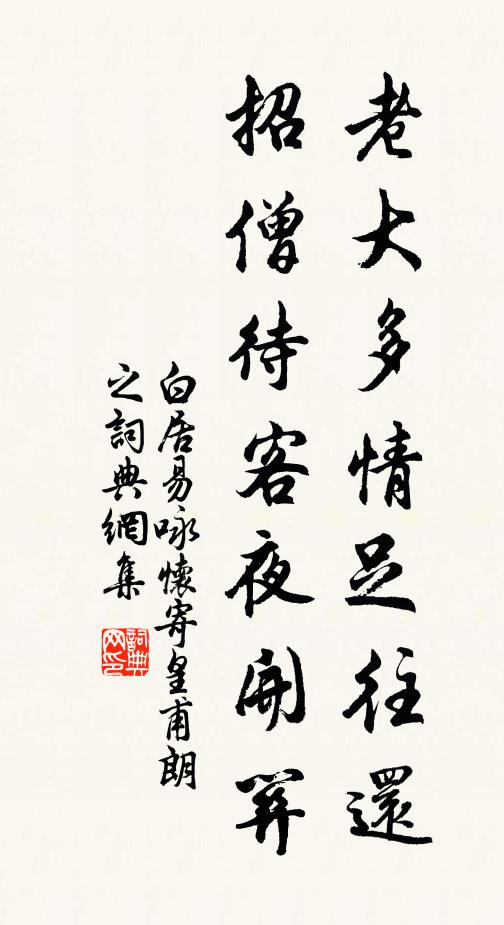 老大多情足往還
招僧待客夜開關
白居易咏懷寄皇甫朗
之詞典網集
詞典
网印